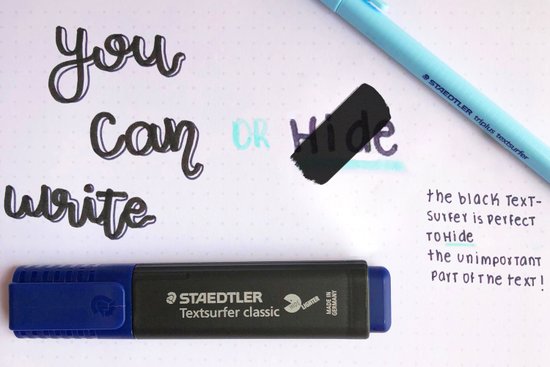 you
can
write
OR Hide
STAEDTLER triplus Textsurfer
the black TEXT-
SURFER is PERFECT
TO Hide
the UNIMPORTANT
PART OF THE TEXT!
STAEDTLER
Textsurfer classic
LIGHTER
MADE IN
GERMANY